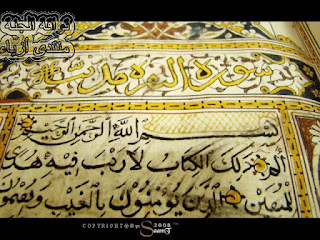 الجنة
منتدى أزياء
سورة البقرة مدنية
بسم الله الرحمن الرحيم
الم ذلك الكتاب لا ريب فيه هدى
للمتقين الذين يؤمنون بالغيب ويقيمون
COPYRIGHT 2008